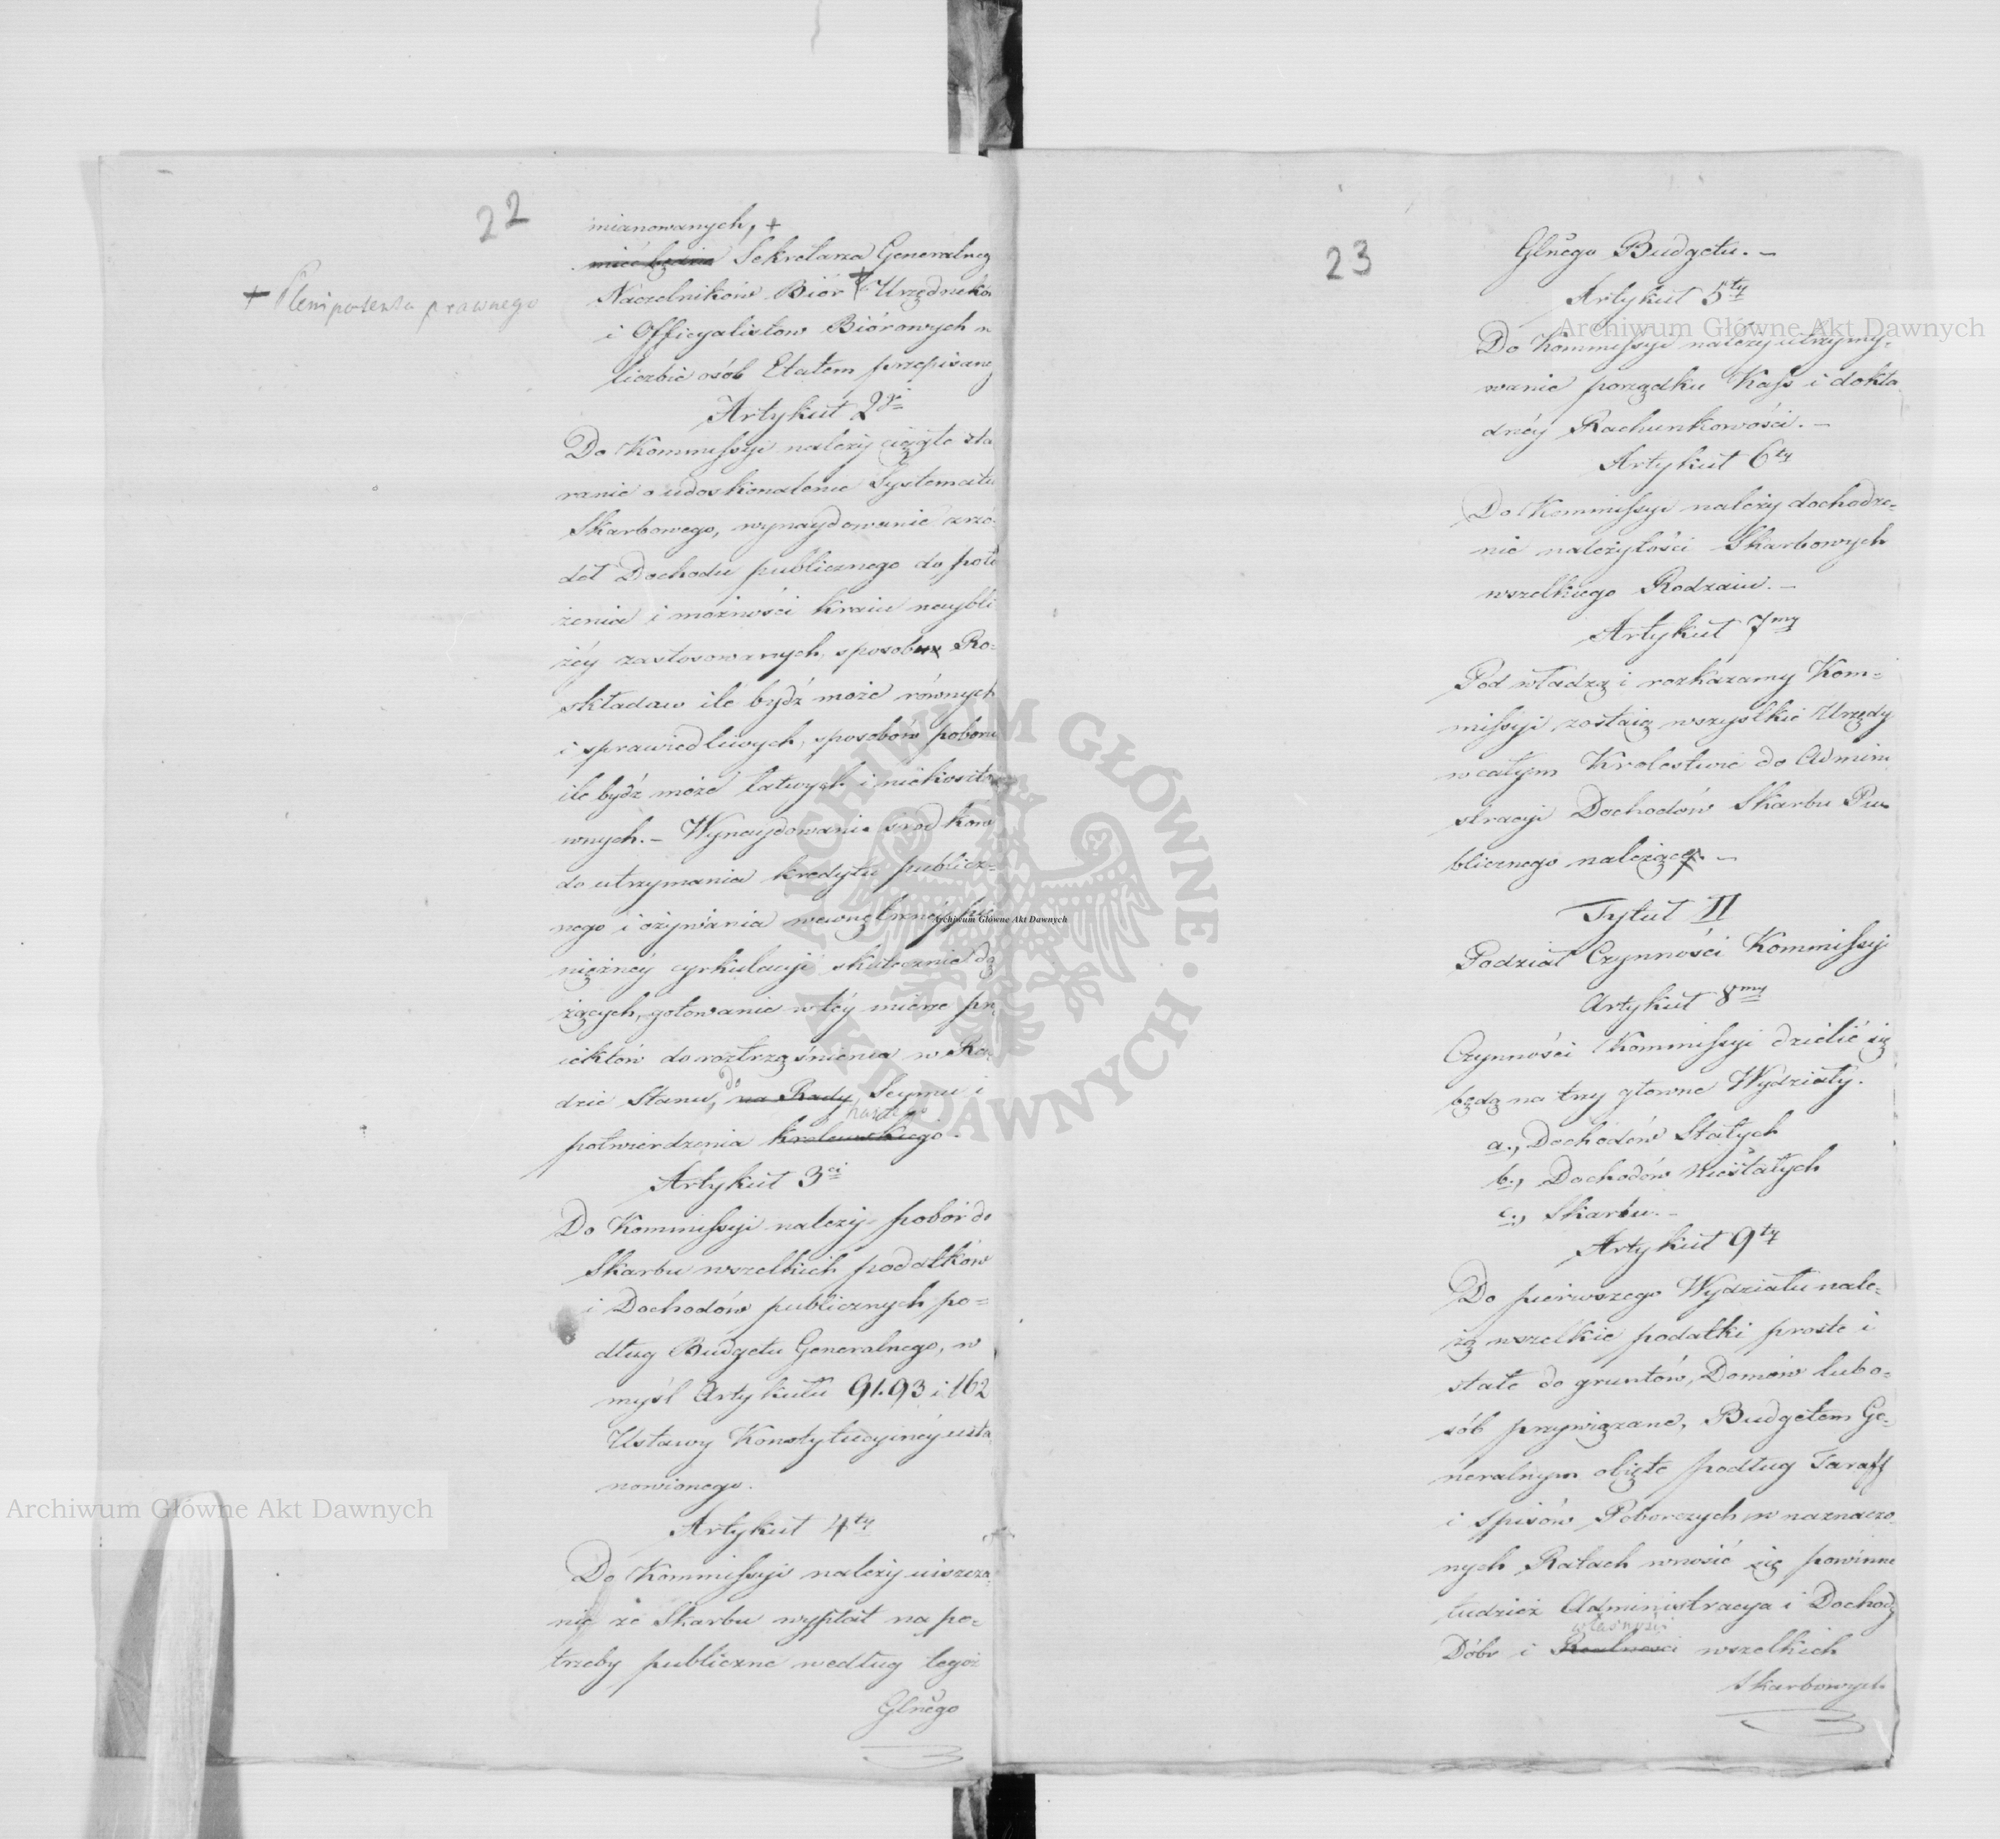 22
mianowanych, +
mieć będzie Sekretarza Generalneg
Naczelników Biór + Urzędnikó
+ Plenipotenta prawnego
i Officyalistow Biórowych w
liczbie osób Etatem przepisaney
Artykuł 2gi
Do Kommissyi należy ciągłe sta
ranie o udoskonalenie Systematu
Skarbowego, wynaydowanie zrzó-
deł Dochodu publicznego do poło
żenia i możności kraiu naybli
żéy zastosowanych, sposob Ro-
składów ile bydź może równych
i sprawiedliwych, sposobów poboru
ile bydź może łatwych i niekoszto
wnych. – Wynaydowanie srodków
do utrzymania kredytu publicz-
nego i ożywiania wewnętrznéy pie
niężnéy cyrkulacyi skutecznie dą
żących, gotowanie w téy mierze pro
iektów do roztrząśnienia w Ra-
dzie Stanu, do na Rady Seymu i
naszego
potwierdzenia Krolewskiego –
Artykuł 3ci
Do Kommissyi należy pobór do
Skarbu wszelkich podatków
i Dochodów publicznych po-
dług Budgetu Generalnego, w
myśl Artykułu 91. 93 i 162
Ustawy Konstytucyinéy usta
nowionego.
Artykuł 4ty
Do Kommissyi należy uiszcza-
nie ze Skarbu wypłat na po-
trzeby publiczne według tegoż
Glnego
23
Glnego Budgetu. –
Artykuł 5ty
Do Kommissyi należy utrzymy-
wanie porządku Kass i dokła
dnéy Rachunkowości. –
Artykuł 6ty
Do Kommissyi należy dochodze-
nie należytości Skarbowych
wszelkiego Rodzaiu. –
Artykuł 7my
Pod władzą i rozkazamy Kom-
missyi zostaią wszystkie Urzędy
w całym Krolestwie do Admini
stracyi Dochodów Skarbu Pu-
blicznego należące. –
Tytuł II
Podział Czynności Kommissyi
Artykuł 8my
Czynności Kommissyi dzielić się
będą na trzy głowne Wydziały.
a., Dochodów Stałych
b., Dochodów Niestałych
c., Skarbu. –
Artykuł 9ty
Do pierwszego Wydziału nale-
żą wszelkie podatki proste i
stałe do gruntów, Domów lub o-
sób przywiązane, Budgetem Ge-
neralnym obięte podług Taryff
i spisów Poborczych w naznaczo-
nych Ratach wnosić się powinne
tudzież Administracya i Dochody
własności
Dóbr i Realności wszelkich
Skarbowych
Archiwum Główne Akt Dawnych
Archiwum Główne Akt Dawnych
Archiwum Główne Akt Dawnych
ARCHIWUM GŁÓWNE · AKT DAWNYCH ·